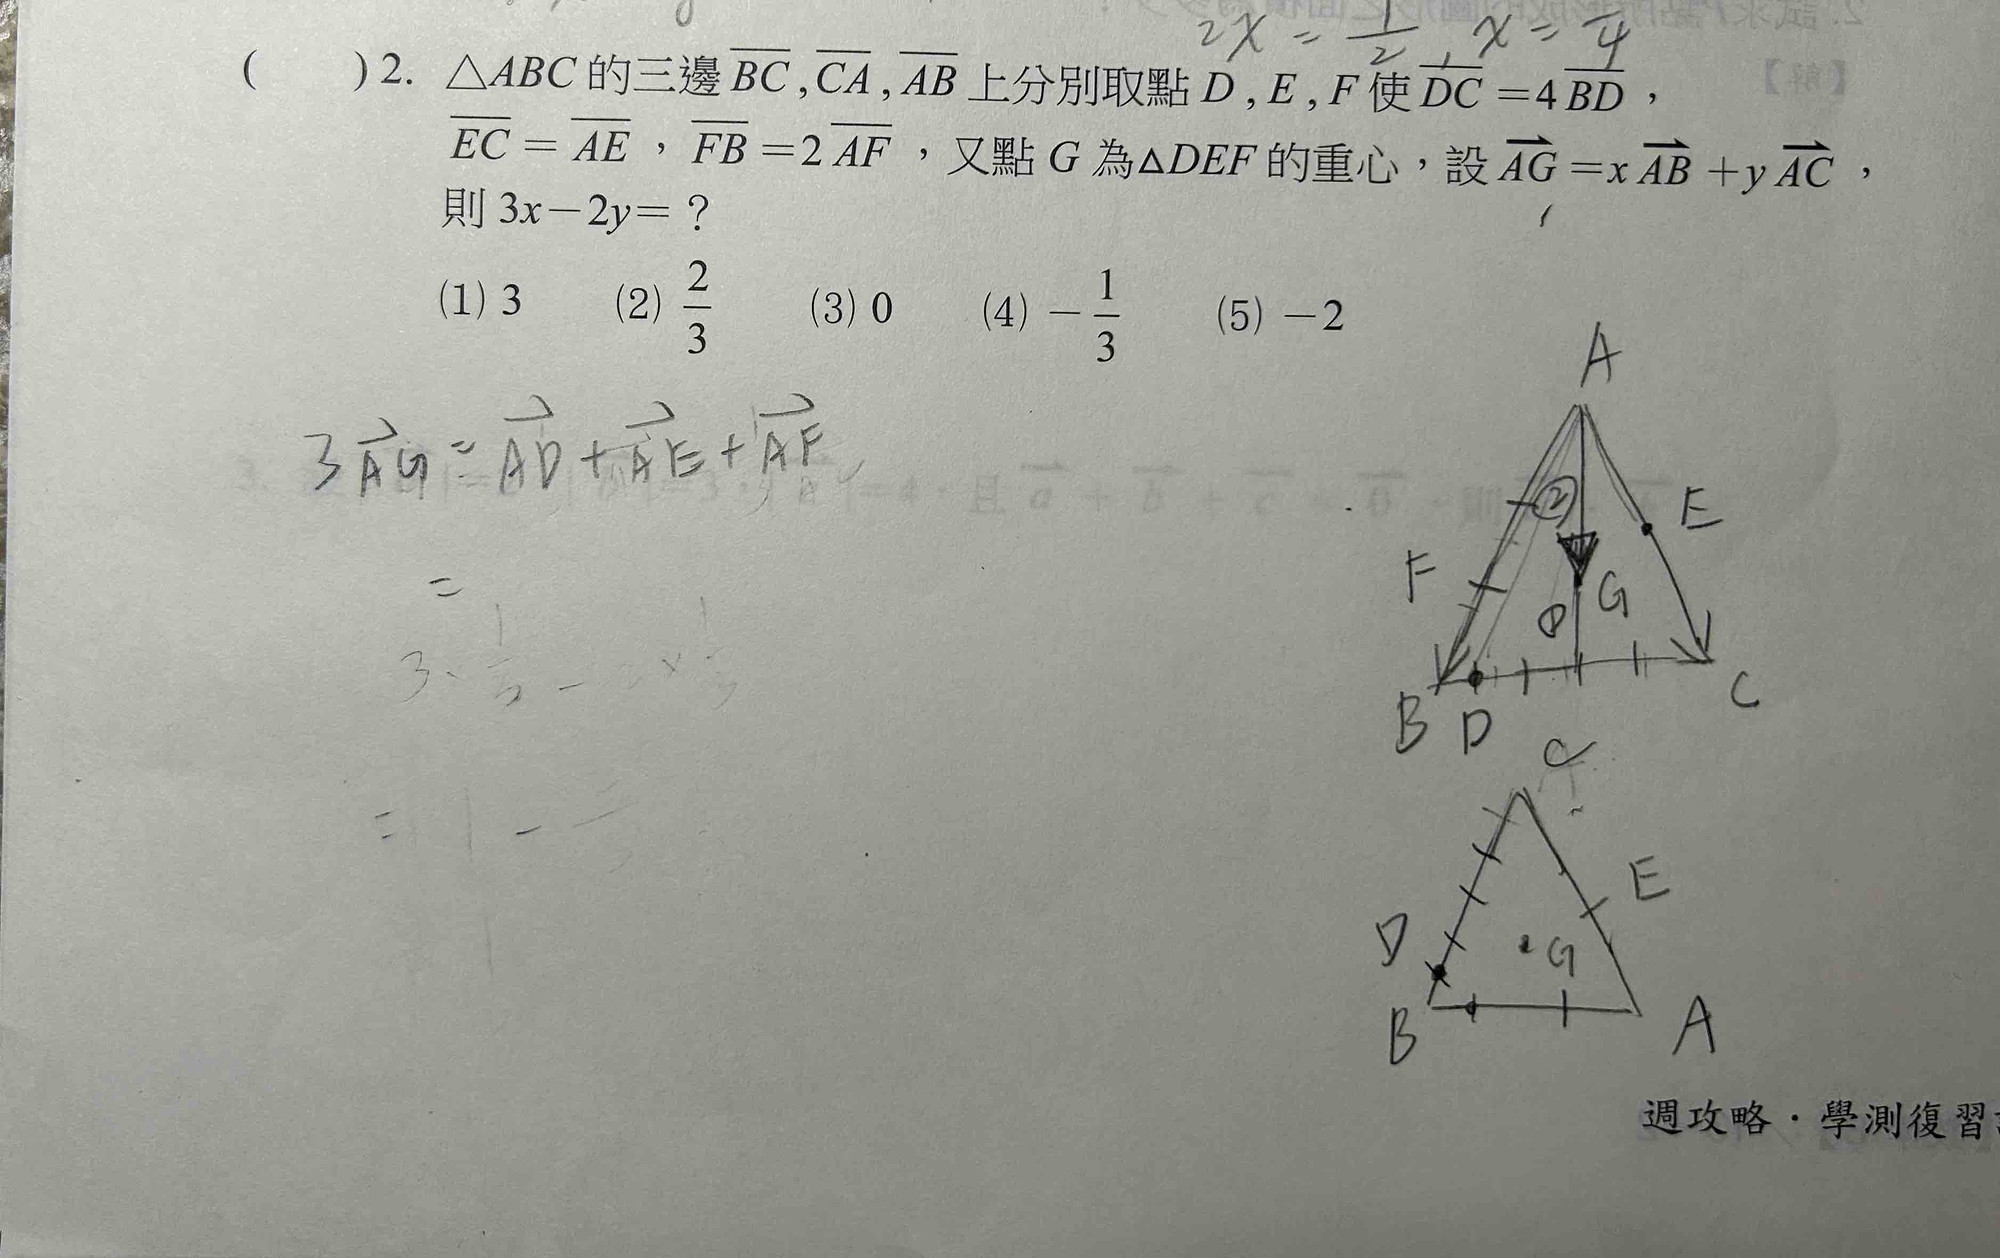 2x = 1/2, x = 1/4
( )2. △ABC 的三邊 BC , CA , AB 上分別取點 D , E , F 使 DC =4 BD ,
EC = AE , FB =2 AF ,又點 G 為△DEF 的重心,設 AG =x AB +y AC ,
則 3x-2y= ?
(1) 3 (2) 2/3 (3) 0 (4) -1/3 (5) -2
3AG = AD + AE + AF
=
A
② E
F G
①
B D C
C
E
D G
B A
週攻略・學測復習